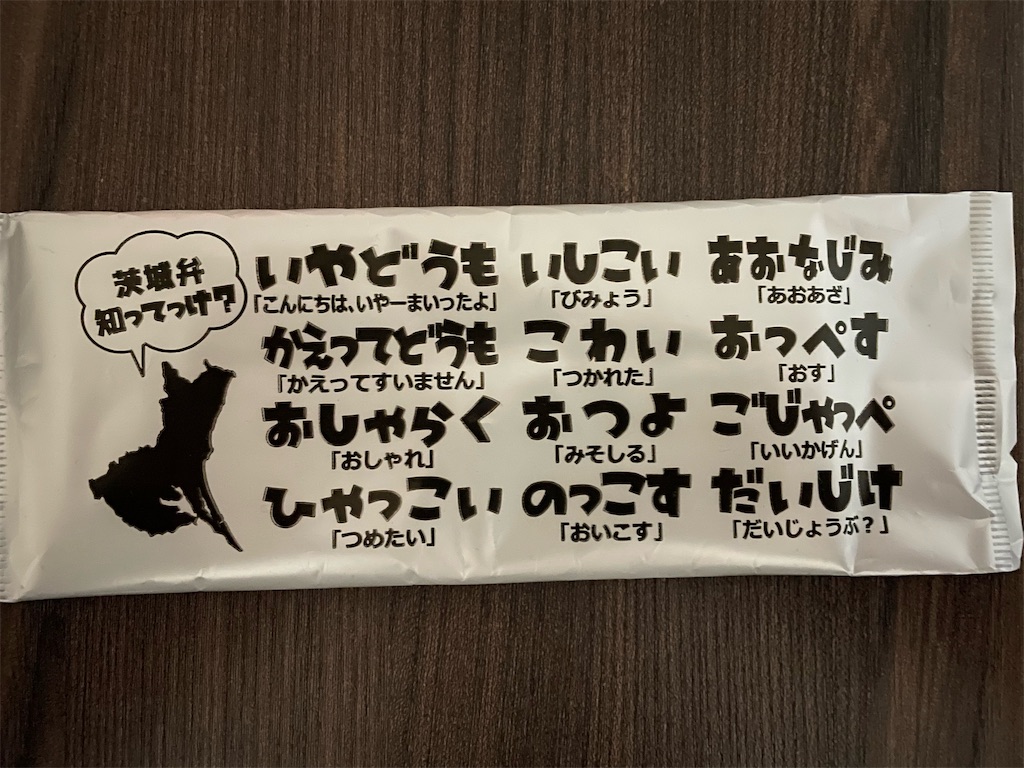 茨城弁
知ってっけ?
いやどうも
「こんにちは、いやーまいったよ」
いしこい
「びみょう」
あおなじみ
「あおあざ」
かえってどうも
「かえってすいません」
こわい
「つかれた」
おっぺす
「おす」
おしゃらく
「おしゃれ」
おつよ
「みそしる」
ごじゃっぺ
「いいかげん」
ひやっこい
「つめたい」
のっこす
「おいこす」
だいじけ
「だいじょうぶ?」